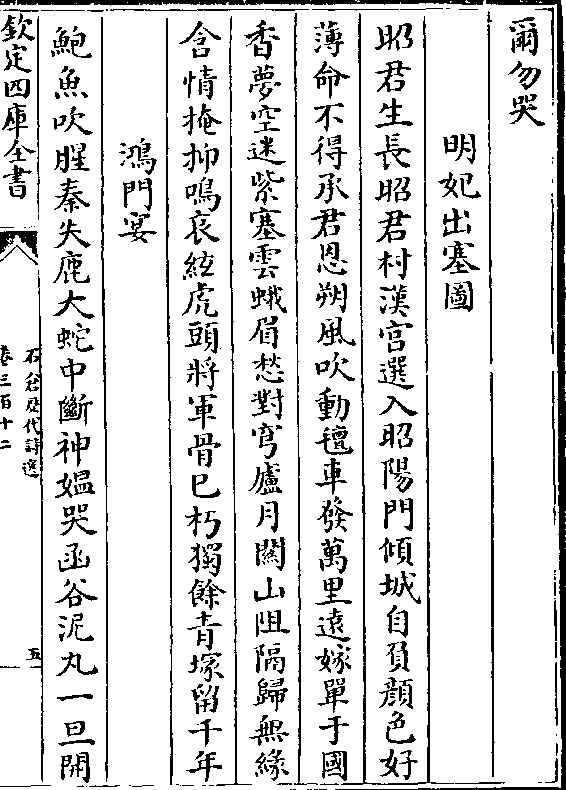 爾勿哭
明妃出塞圖
昭君生長昭君村漢宫選入昭陽門傾城自負顔色好
薄命不得承君恩朔風吹動氊車發萬里逺嫁單于國
香夢空迷紫塞雲蛾眉愁對穹廬月闗山阻隔歸無緣
含情掩抑鳴哀絃虎頭將軍骨已朽獨餘青塚留千年
鴻門宴
鮑魚吹腥秦失鹿大蛇中斷神媪哭函谷泥丸一旦開
欽定四庫全書
石倉歴代詩選
卷三百十二
五